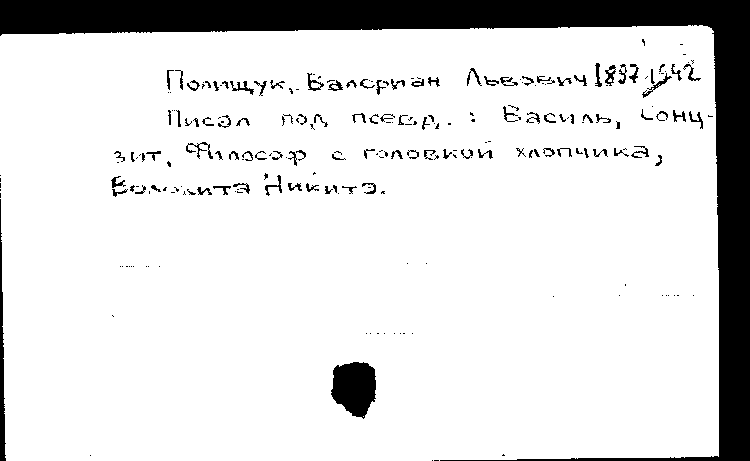 Полищук, Валериан Львович 1897-1942
Писал под псевд.: Василь, Сонц-
вит, Философ с головкой хлопчика,
Волокита Никита.